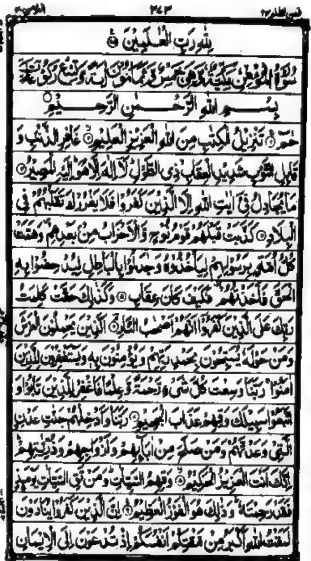 لِلّٰهِ رَبِّ الْعٰلَمِيْنَ
بِسْمِ اللهِ الرَّحْمٰنِ الرَّحِيْمِ
حٰمٓ تَنْزِيْلُ الْكِتٰبِ مِنَ اللهِ الْعَزِيْزِ الْعَلِيْمِ غَافِرِ الذَّنْۢبِ وَ
قَابِلِ التَّوْبِ شَدِيْدِ الْعِقَابِ ذِى الطَّوْلِ لَاۤ اِلٰهَ اِلَّا هُوَ اِلَيْهِ الْمَصِيْرُ
مَا يُجَادِلُ فِيْۤ اٰيٰتِ اللهِ اِلَّا الَّذِيْنَ كَفَرُوْا فَلَا يَغْرُرْكَ تَقَلُّبُهُمْ فِى
الْبِلَادِ كَذَّبَتْ قَبْلَهُمْ قَوْمُ نُوْحٍ وَّالْاَحْزَابُ مِنْۢ بَعْدِهِمْ وَهَمَّتْ
كُلُّ اُمَّةٍۭ بِرَسُوْلِهِمْ لِيَاْخُذُوْهُ وَجٰدَلُوْا بِالْبَاطِلِ لِيُدْحِضُوْا بِهِ
الْحَقَّ فَاَخَذْتُهُمْ فَكَيْفَ كَانَ عِقَابِ وَكَذٰلِكَ حَقَّتْ كَلِمَتُ
رَبِّكَ عَلَى الَّذِيْنَ كَفَرُوْۤا اَنَّهُمْ اَصْحٰبُ النَّارِ اَلَّذِيْنَ يَحْمِلُوْنَ الْعَرْشَ
وَمَنْ حَوْلَهٗ يُسَبِّحُوْنَ بِحَمْدِ رَبِّهِمْ وَيُؤْمِنُوْنَ بِهٖ وَيَسْتَغْفِرُوْنَ لِلَّذِيْنَ
اٰمَنُوْا رَبَّنَا وَسِعْتَ كُلَّ شَىْءٍ رَّحْمَةً وَّعِلْمًا فَاغْفِرْ لِلَّذِيْنَ تَابُوْا وَ
اتَّبَعُوْا سَبِيْلَكَ وَقِهِمْ عَذَابَ الْجَحِيْمِ رَبَّنَا وَاَدْخِلْهُمْ جَنّٰتِ عَدْنِ
الَّتِيْ وَعَدْتَّهُمْ وَمَنْ صَلَحَ مِنْ اٰبَآئِهِمْ وَاَزْوَاجِهِمْ وَذُرِّيّٰتِهِمْ
اِنَّكَ اَنْتَ الْعَزِيْزُ الْحَكِيْمُ وَقِهِمُ السَّيِّاٰتِ وَمَنْ تَقِ السَّيِّاٰتِ يَوْمَئِذٍ
فَقَدْ رَحِمْتَهٗ وَذٰلِكَ هُوَ الْفَوْزُ الْعَظِيْمُ اِنَّ الَّذِيْنَ كَفَرُوْا يُنَادَوْنَ
لَمَقْتُ اللهِ اَكْبَرُ مِنْ مَّقْتِكُمْ اَنْفُسَكُمْ اِذْ تُدْعَوْنَ اِلَى الْاِيْمَانِ